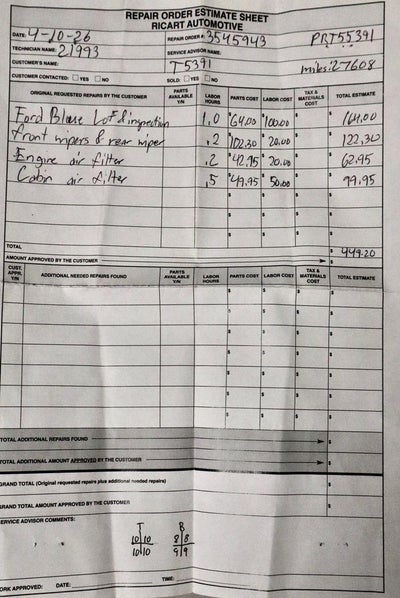 REPAIR ORDER ESTIMATE SHEET
RICART AUTOMOTIVE
DATE: 4-10-26 REPAIR ORDER #: 3545943 PRT55391
TECHNICIAN NAME: 21993 SERVICE ADVISOR NAME:
CUSTOMER'S NAME: T5391 miles: 27608
CUSTOMER CONTACTED: YES NO SOLD: YES NO
ORIGINAL REQUESTED REPAIRS BY THE CUSTOMER PARTS AVAILABLE Y/N LABOR HOURS PARTS COST LABOR COST TAX & MATERIALS COST TOTAL ESTIMATE
Ford Blue inspection 1.0 $64.00 $100.00 $ 164.00
front wipers & rear wiper .2 $102.30 $20.00 $ 122.30
Engine air filter .2 $42.95 $20.00 $ 62.95
Cabin air filter .5 $49.95 $50.00 $ 99.95
$ $ $ $
$ $ $ $
$ $ $ $
TOTAL $ 449.20
AMOUNT APPROVED BY THE CUSTOMER $
CUST. APPR. Y/N ADDITIONAL NEEDED REPAIRS FOUND PARTS AVAILABLE Y/N LABOR HOURS PARTS COST LABOR COST TAX & MATERIALS COST TOTAL ESTIMATE
$ $ $ $
$ $ $ $
$ $ $ $
$ $ $ $
$ $ $ $
$ $ $ $
$ $ $ $
TOTAL ADDITIONAL REPAIRS FOUND $
TOTAL ADDITIONAL AMOUNT APPROVED BY THE CUSTOMER $
GRAND TOTAL (Original requested repairs plus additional needed repairs) $
GRAND TOTAL AMOUNT APPROVED BY THE CUSTOMER $
SERVICE ADVISOR COMMENTS:
T B
10 10 8 8
10 10 9 9
WORK APPROVED: DATE: TIME: